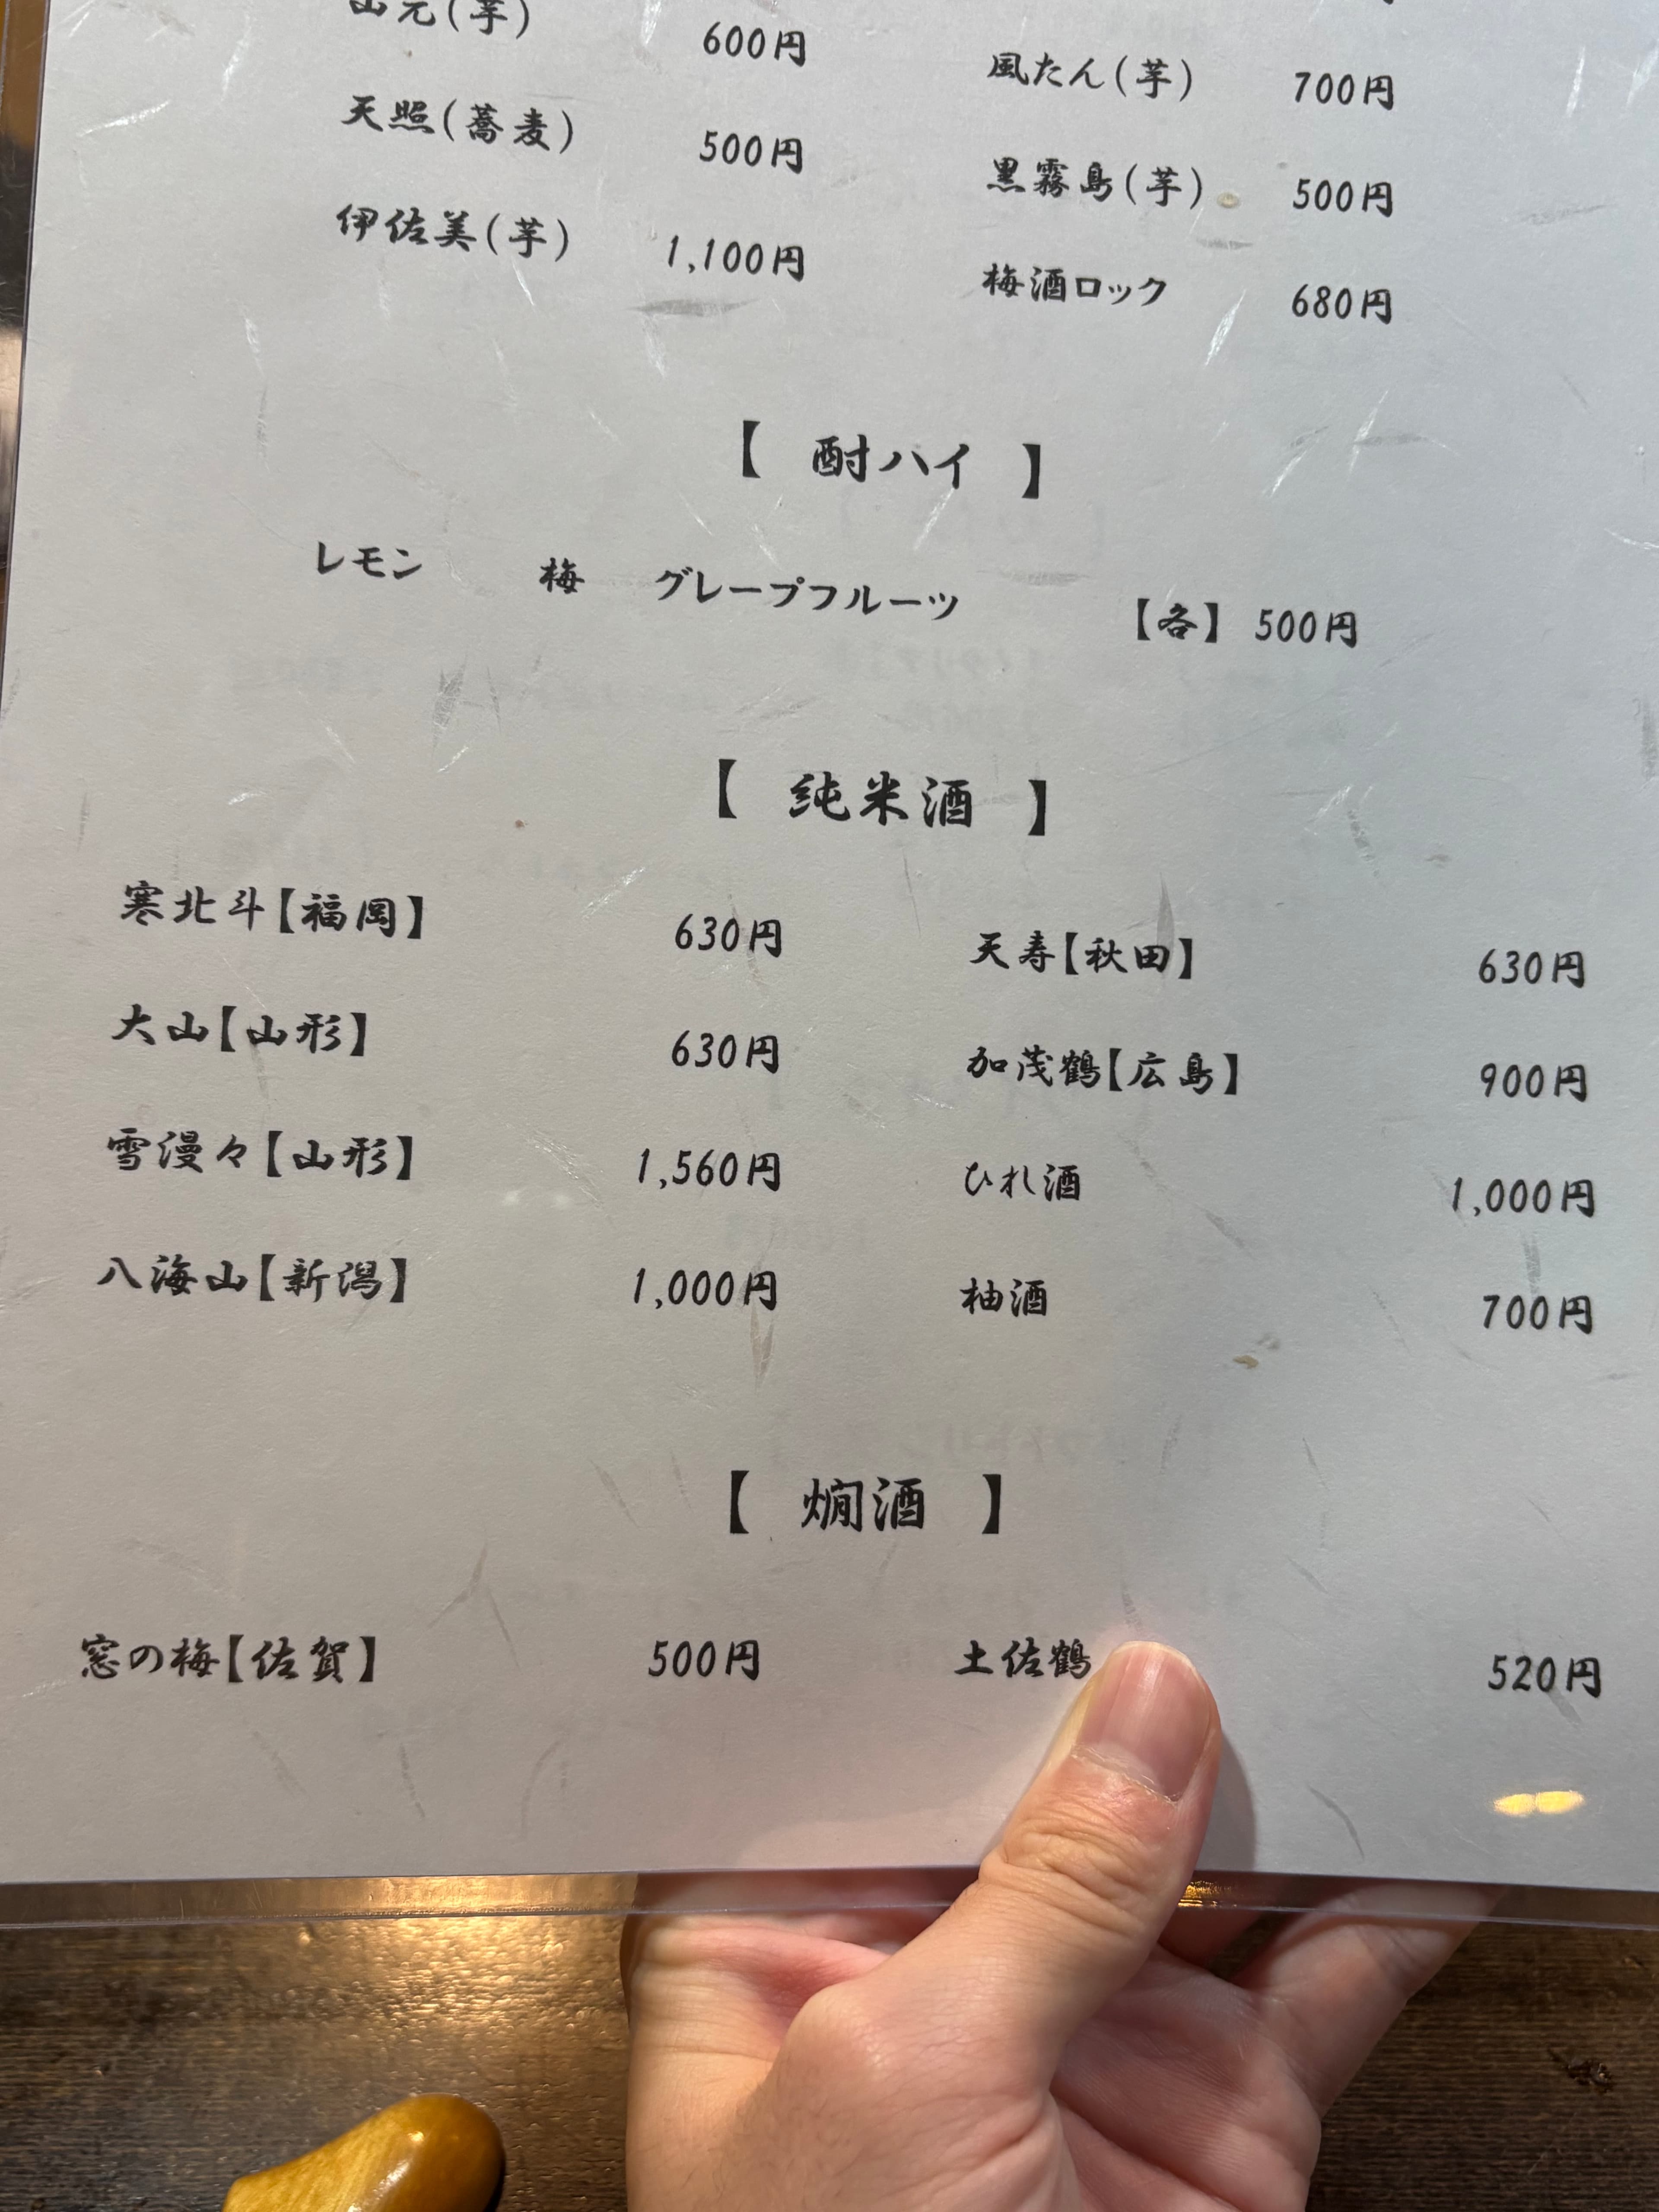 山元(芋) 600円
風たん(芋) 700円
天照(蕎麦) 500円
黒霧島(芋) 500円
伊佐美(芋) 1,100円
梅酒ロック 680円
【 酎ハイ 】
レモン 梅 グレープフルーツ 【各】 500円
【 純米酒 】
寒北斗【福岡】 630円
天寿【秋田】 630円
大山【山形】 630円
加茂鶴【広島】 900円
雪漫々【山形】 1,560円
ひれ酒 1,000円
八海山【新潟】 1,000円
柚酒 700円
【 燗酒 】
窓の梅【佐賀】 500円
土佐鶴 520円